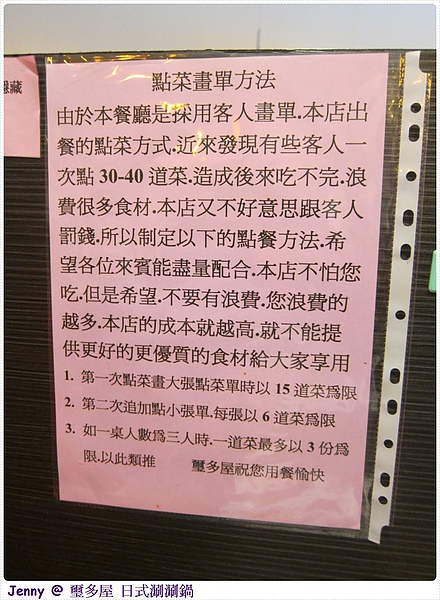 隱藏
點菜畫單方法
由於本餐廳是採用客人畫單.本店出
餐的點菜方式.近來發現有些客人一
次點 30-40 道菜.造成後來吃不完.浪
費很多食材.本店又不好意思跟客人
罰錢.所以制定以下的點餐方法.希
望各位來賓能盡量配合.本店不怕您
吃.但是希望.不要有浪費.您浪費的
越多.本店的成本就越高.就不能提
供更好的更優質的食材給大家享用
1. 第一次點菜畫大張點菜單時以 15 道菜爲限
2. 第二次追加點小張單.每張以 6 道菜爲限
3. 如一桌人數爲三人時.一道菜最多以 3 份爲
限.以此類推 璽多屋祝您用餐愉快
Jenny @ 璽多屋 日式涮涮鍋